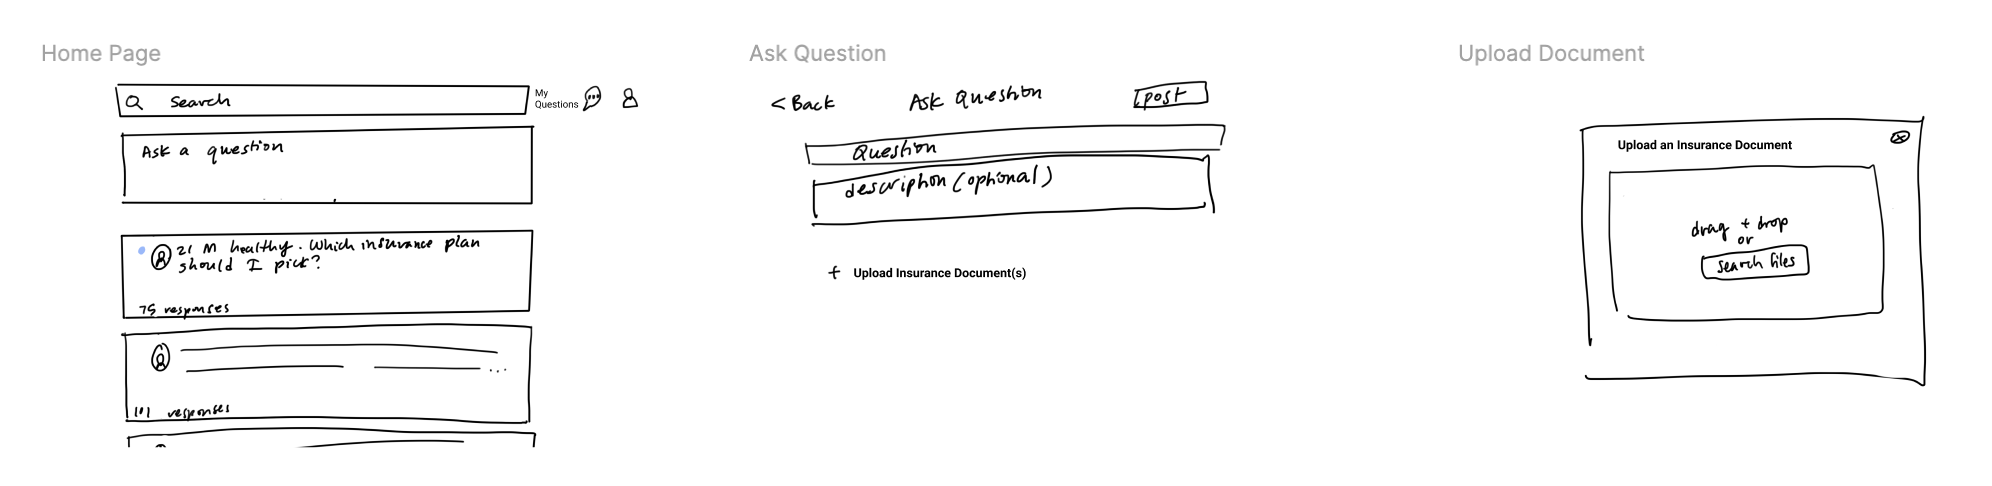 Home Page
Search
My
Questions
Ask a question
21 M healthy. Which insurance plan
should I pick?
75 responses
101 responses
Ask Question
< Back
Ask Question
post
Question
description (optional)
+ Upload Insurance Document(s)
Upload Document
Upload an Insurance Document
drag + drop
or
search files